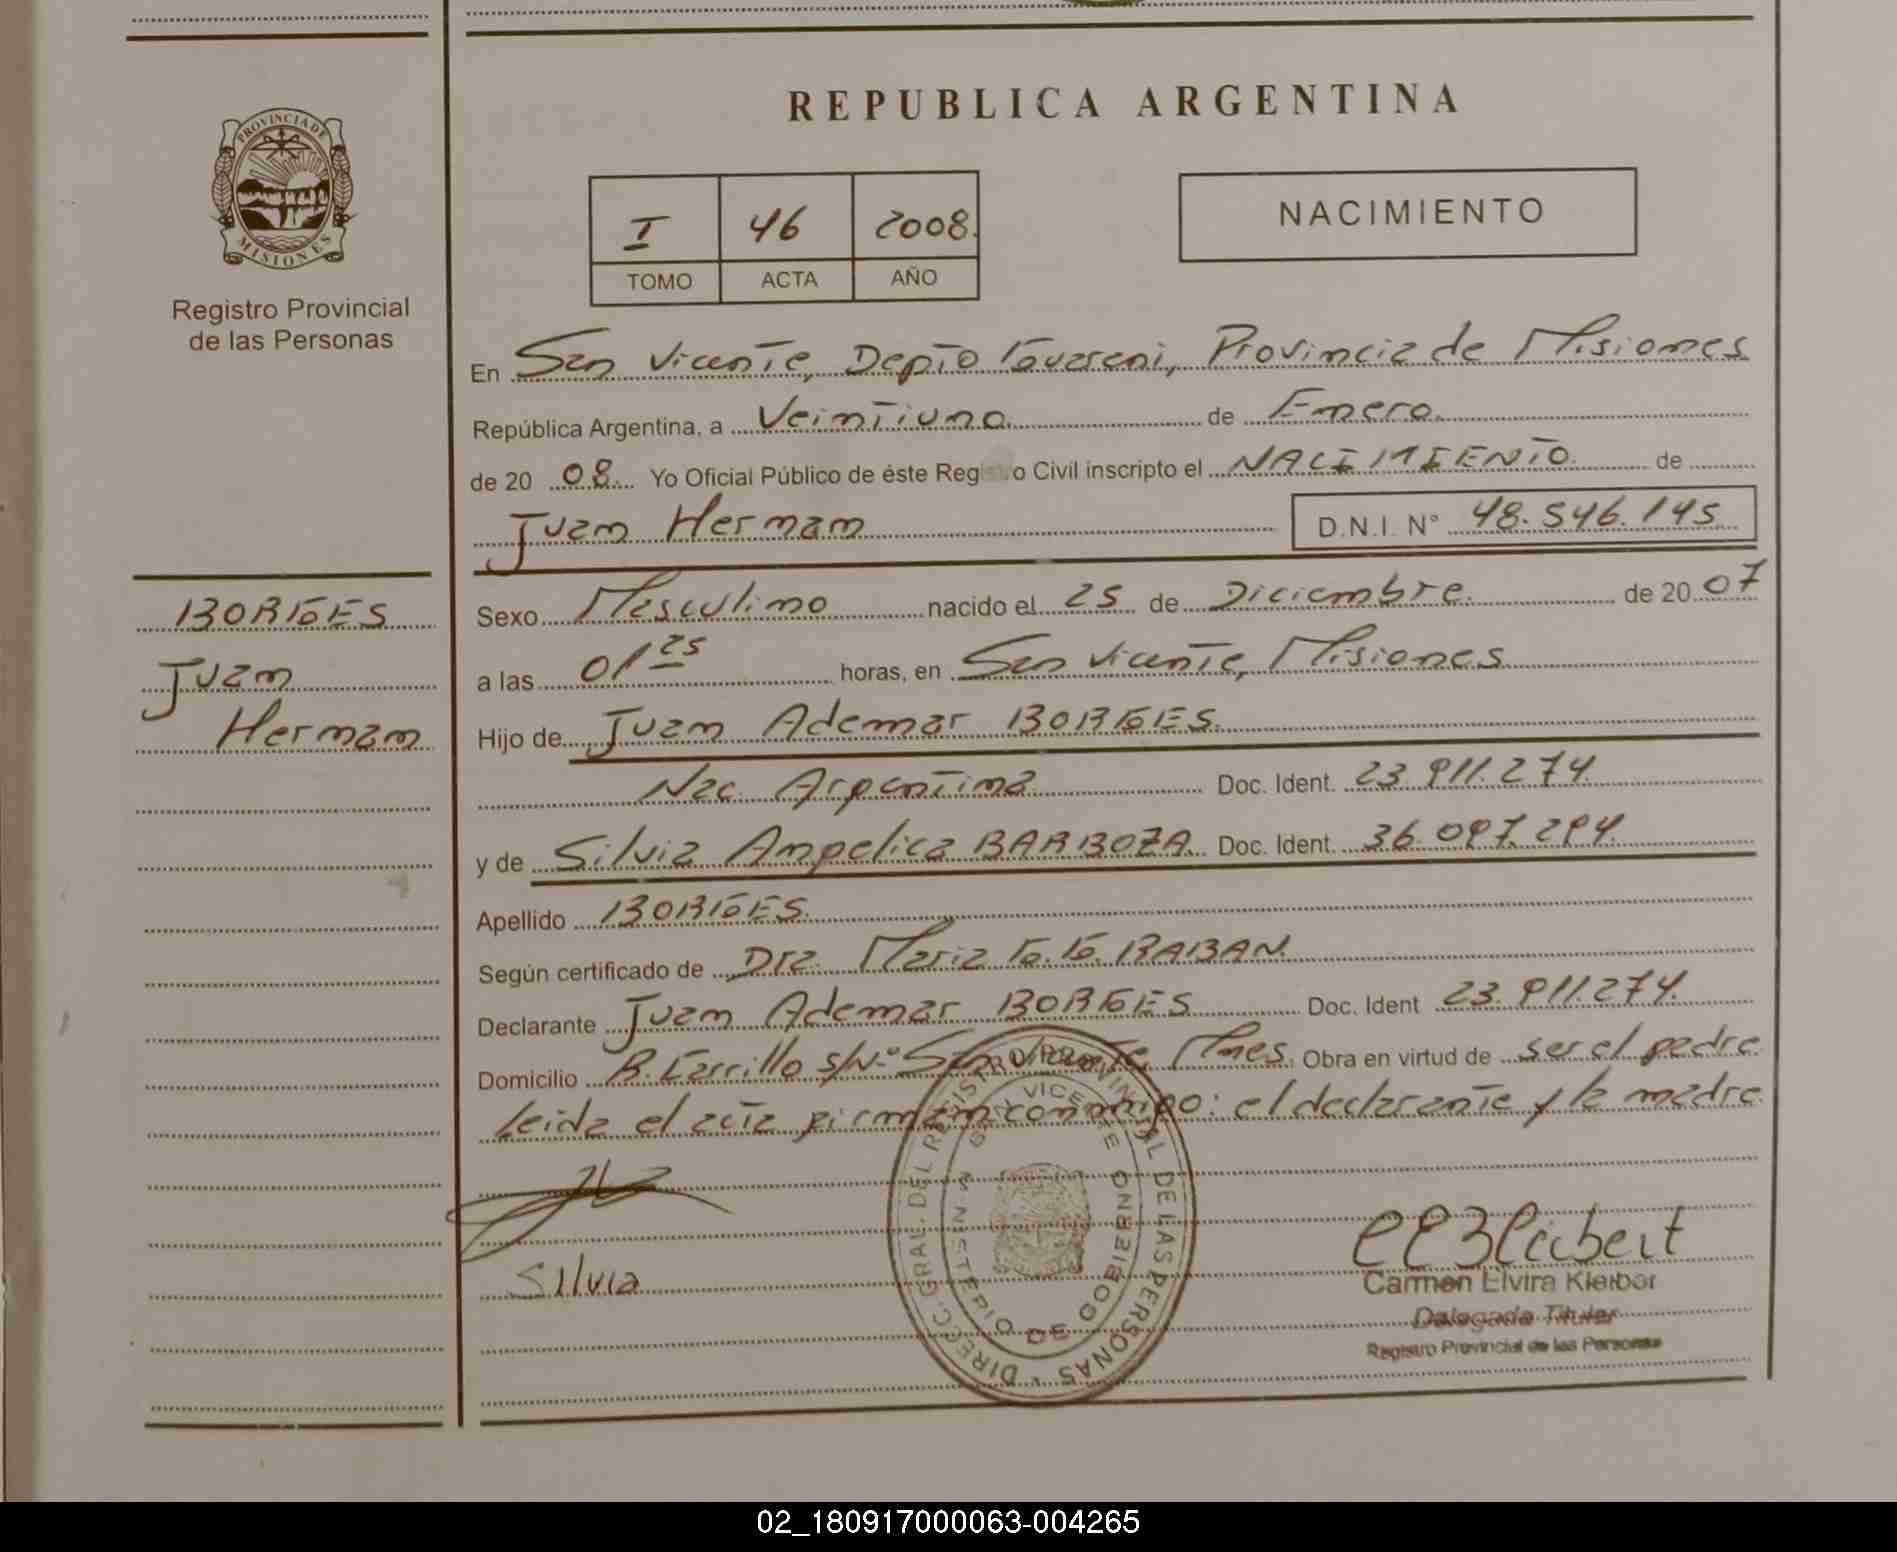 REPUBLICA ARGENTINA
PROVINCIA DE
MISIONES
Registro Provincial
de las Personas
I 46 2008.
TOMO ACTA AÑO
NACIMIENTO
En San Vicente, Depto Guarani, Provincia de Misiones
República Argentina, a Veintiuno de Enero.
de 20 08. Yo Oficial Público de éste Registro Civil inscripto el NACIMIENTO de
Juan Hernan D.N.I. N° 48.546.145
BORGES
Juan
Hernan
Sexo Masculino nacido el 25 de Diciembre. de 20 07
a las 01 25 horas, en San Vicente, Misiones
Hijo de Juan Ademar BORGES.
Nac. Argentina Doc. Ident. 23.911.274.
y de Silvia Angelica BARBOZA. Doc. Ident. 36.097.294.
Apellido BORGES.
Según certificado de Dra. Maria G. G. RABAN.
Declarante Juan Ademar BORGES Doc. Ident 23.911.274.
Domicilio B. Carrillo s/N.° San Vicente, Mnes. Obra en virtud de ser el padre
Leida el acta firman conmigo: el declarante y la madre.
Silvia
DIRECC. GRAL. DEL REGISTRO PROVINCIAL DE LAS PERSONAS
MINISTERIO DE GOBIERNO
VICENTE
Carmen Elvira Kleibert
Delegada Titular
Registro Provincial de las Personas
02_180917000063-004265